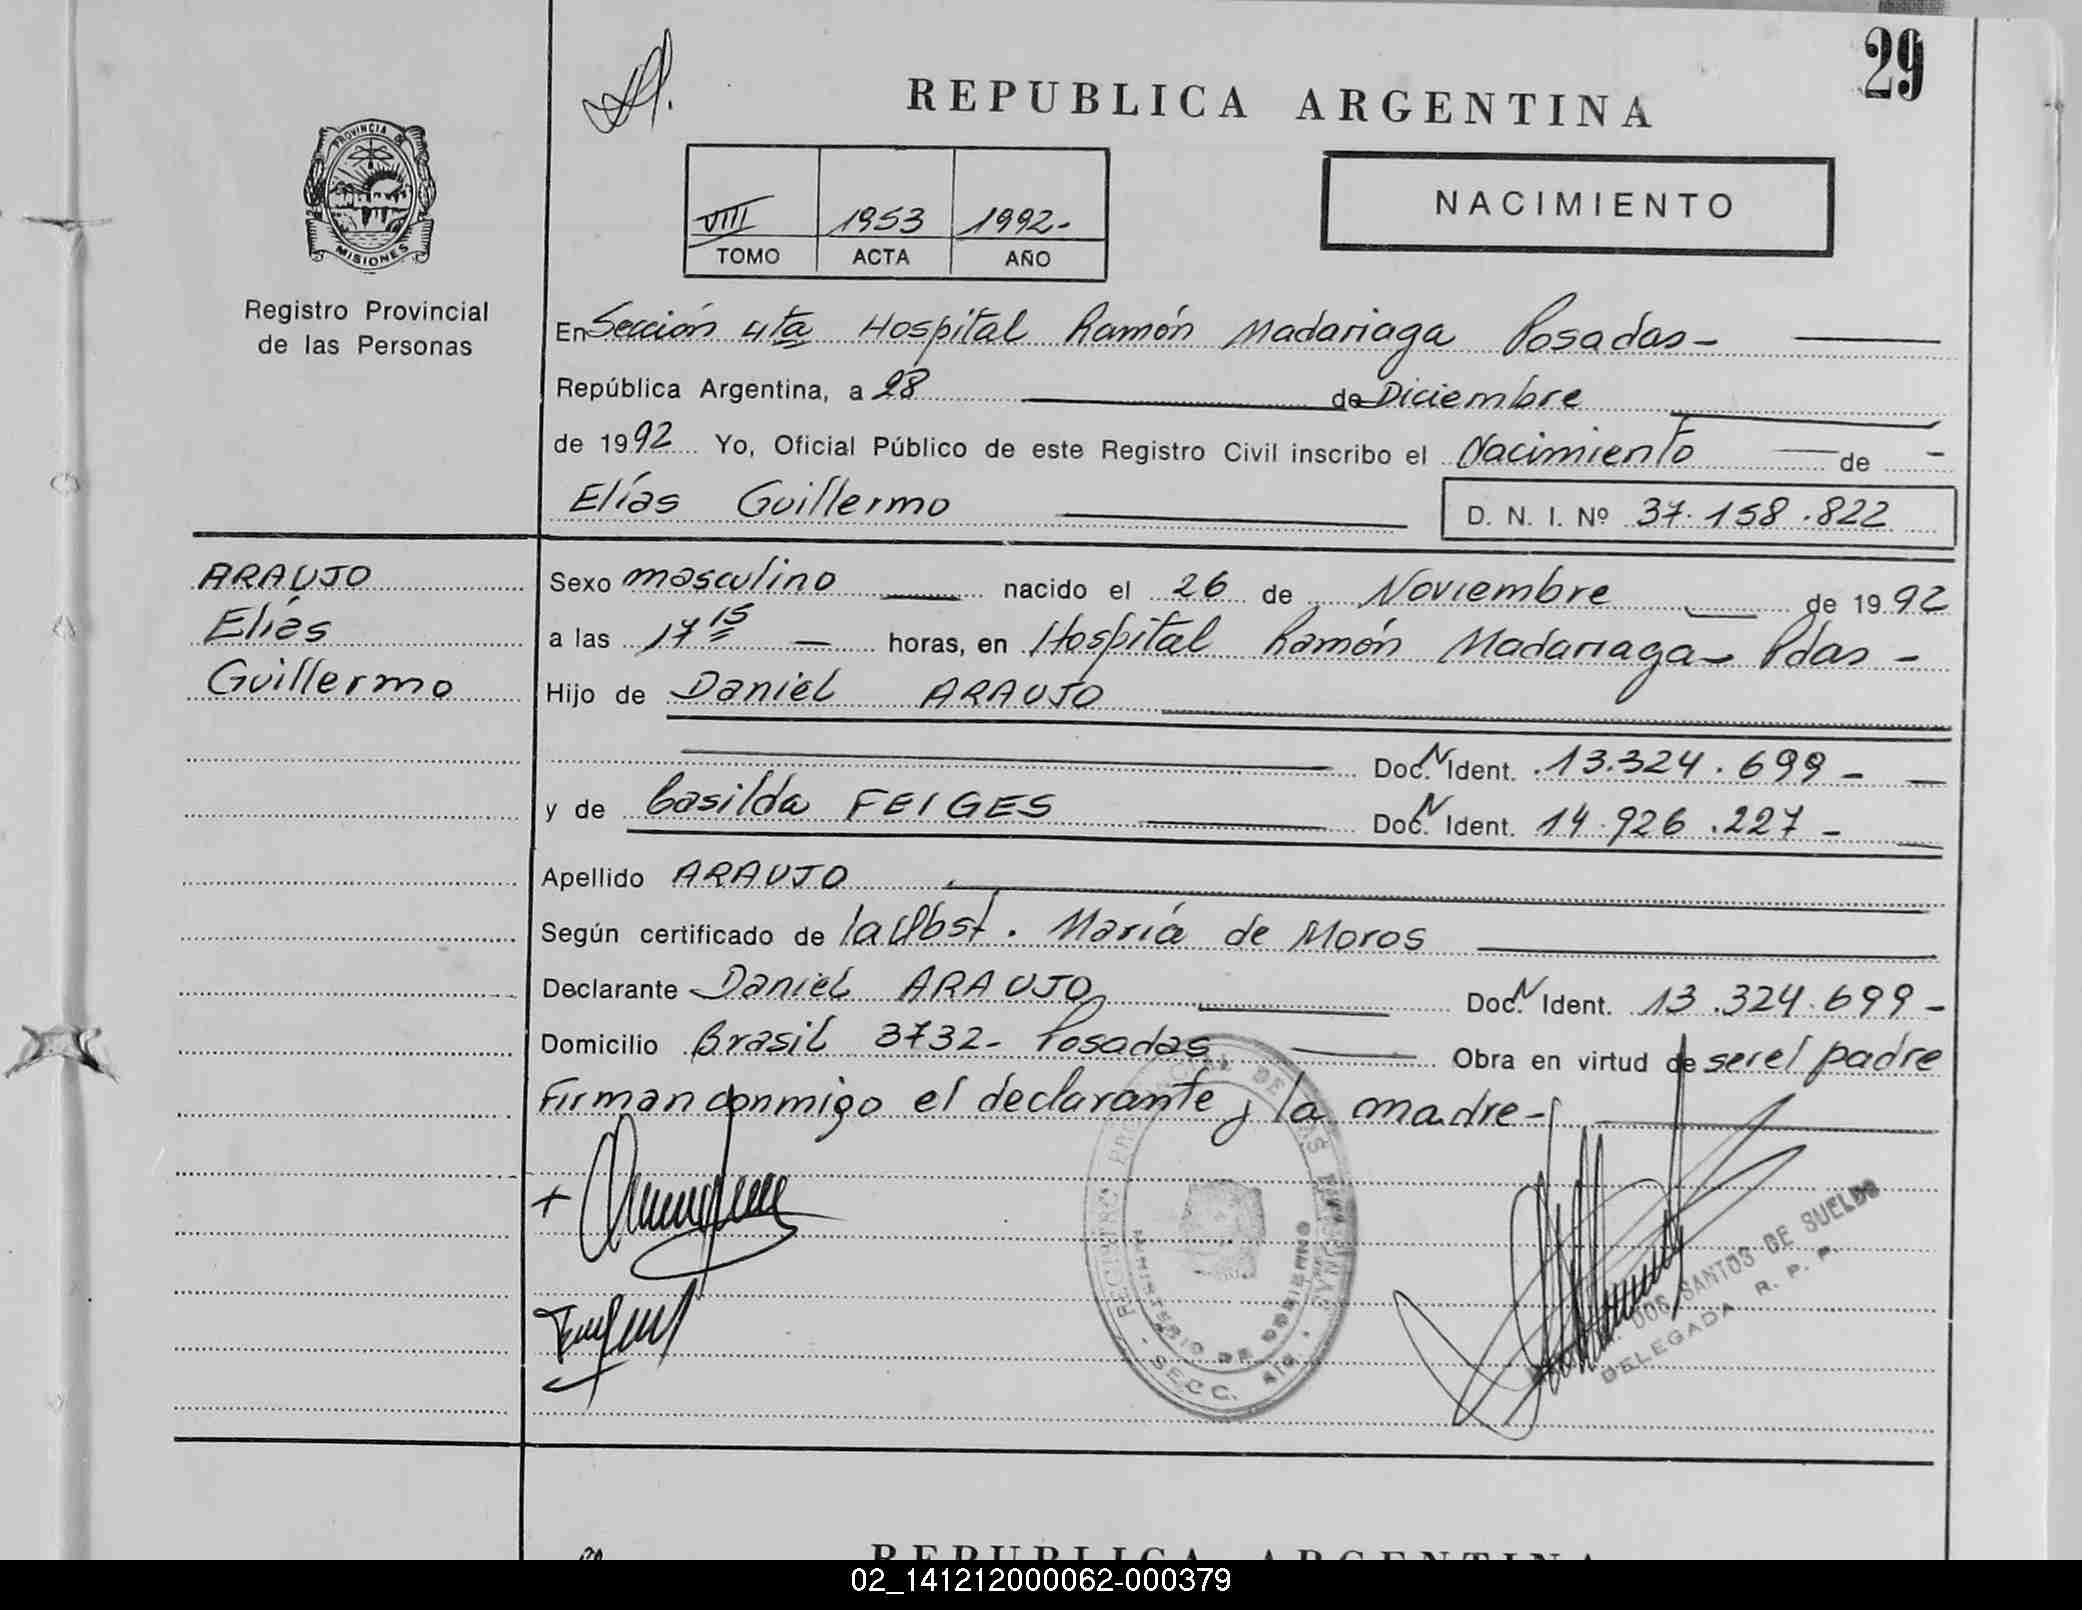 29
REPUBLICA ARGENTINA
PROVINCIA DE
MISIONES
NACIMIENTO
VIII 1953 1992-
TOMO ACTA AÑO
Registro Provincial
de las Personas
En Sección 4ta Hospital Ramón Madariaga Posadas-
República Argentina, a 28 de Diciembre
de 1992 Yo, Oficial Público de este Registro Civil inscribo el Nacimiento de
Elías Guillermo D. N. I. Nº 37.158.822
ARAUJO
Elías
Guillermo
Sexo masculino nacido el 26 de Noviembre de 1992
a las 17 15 horas, en Hospital Ramón Madariaga- Pdas-
Hijo de Daniel ARAUJO
Doc. N Ident. 13.324.699-
y de Casilda FEIGES Doc. N Ident. 14.926.227-
Apellido ARAUJO
Según certificado de la Obst. María de Moros
Declarante Daniel ARAUJO Doc. N Ident. 13.324.699-
Domicilio Brasil 3732- Posadas Obra en virtud de ser el padre
Firman conmigo el declarante y la madre-
REGISTRO PROVINCIAL DE LAS PERSONAS
MINISTERIO DE GOBIERNO
SECC. 4ta
DOS SANTOS DE SUELDO
DELEGADA R. P. P.
REPUBLICA ARGENTINA
02_141212000062-000379